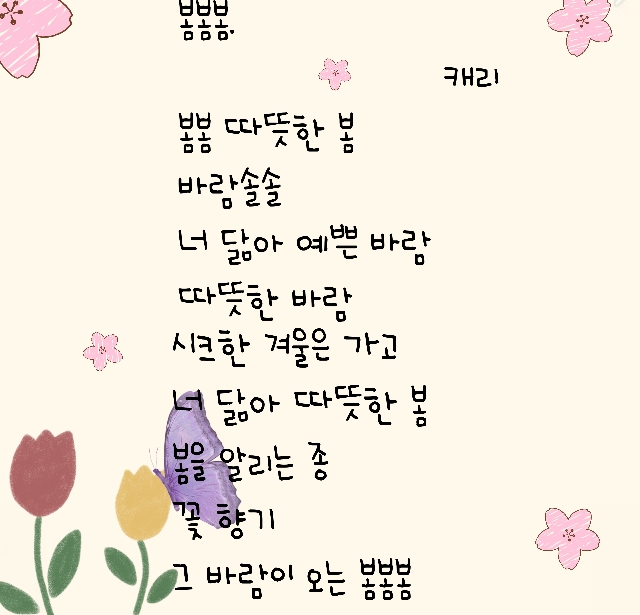 봄봄봄.
캐리
봄봄 따뜻한 봄
바람솔솔
너 닮아 예쁜 바람
따뜻한 바람
시크한 겨울은 가고
너 닮아 따뜻한 봄
봄을 알리는 종
꽃 향기
그 바람이 오는 봄봄봄